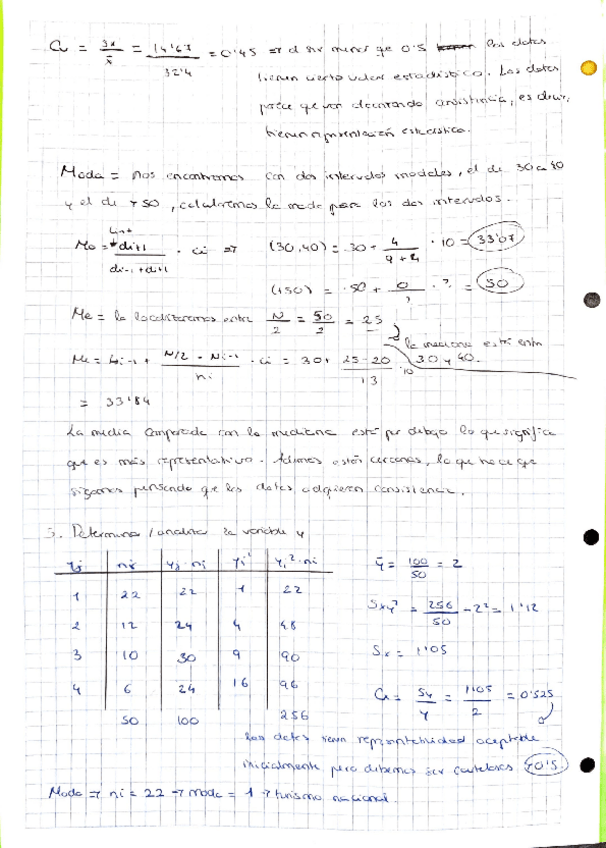 Cv = Sx / x̄ = 14'67 / 32'4 = 0'45 ⇒ al ser menor que 0'5 los datos
tienen cierto valor estadístico. Los datos
parece que van adquiriendo consistencia, es decir,
tienen representación estadística.
Moda = Nos encontramos con dos intervalos modales, el de 30 a 40
y el de +50, calcularemos la moda para los dos intervalos.
Mo = Li-1 + di+1 / di-1 + di+1 · ci ⇒ (30,40) = 30 + 4 / 9+4 · 10 = 33'07
(+50) = 50 + 0 / ? · ? = 50
Me = la localizaremos entre N/2 = 50/2 = 25
la mediana está entre 30 y 40.
Me = Li-1 + N/2 - Ni-1 / ni · ci = 30 + 25-20 / 13 · 10
= 33'84
La media comparada con la mediana está por debajo lo que significa
que es más representativo. Además están cercanas, lo que hace que
sigamos pensando que los datos adquieren consistencia.
5. Determinar / analizar la variable y
yj nj yj·nj yj² yj²·nj
1 22 22 1 22
2 12 24 4 48
3 10 30 9 90
4 6 24 16 96
50 100 256
ȳ = 100/50 = 2
Sxy² = 256/50 - 2² = 1'12
Sx = 1'05
Cv = Sy/y = 1'05/2 = 0'525
Los datos tienen representatividad aceptable
inicialmente pero debemos ser cautelosos >0'5
Moda → ni = 22 → moda = 1 → turismo nacional.